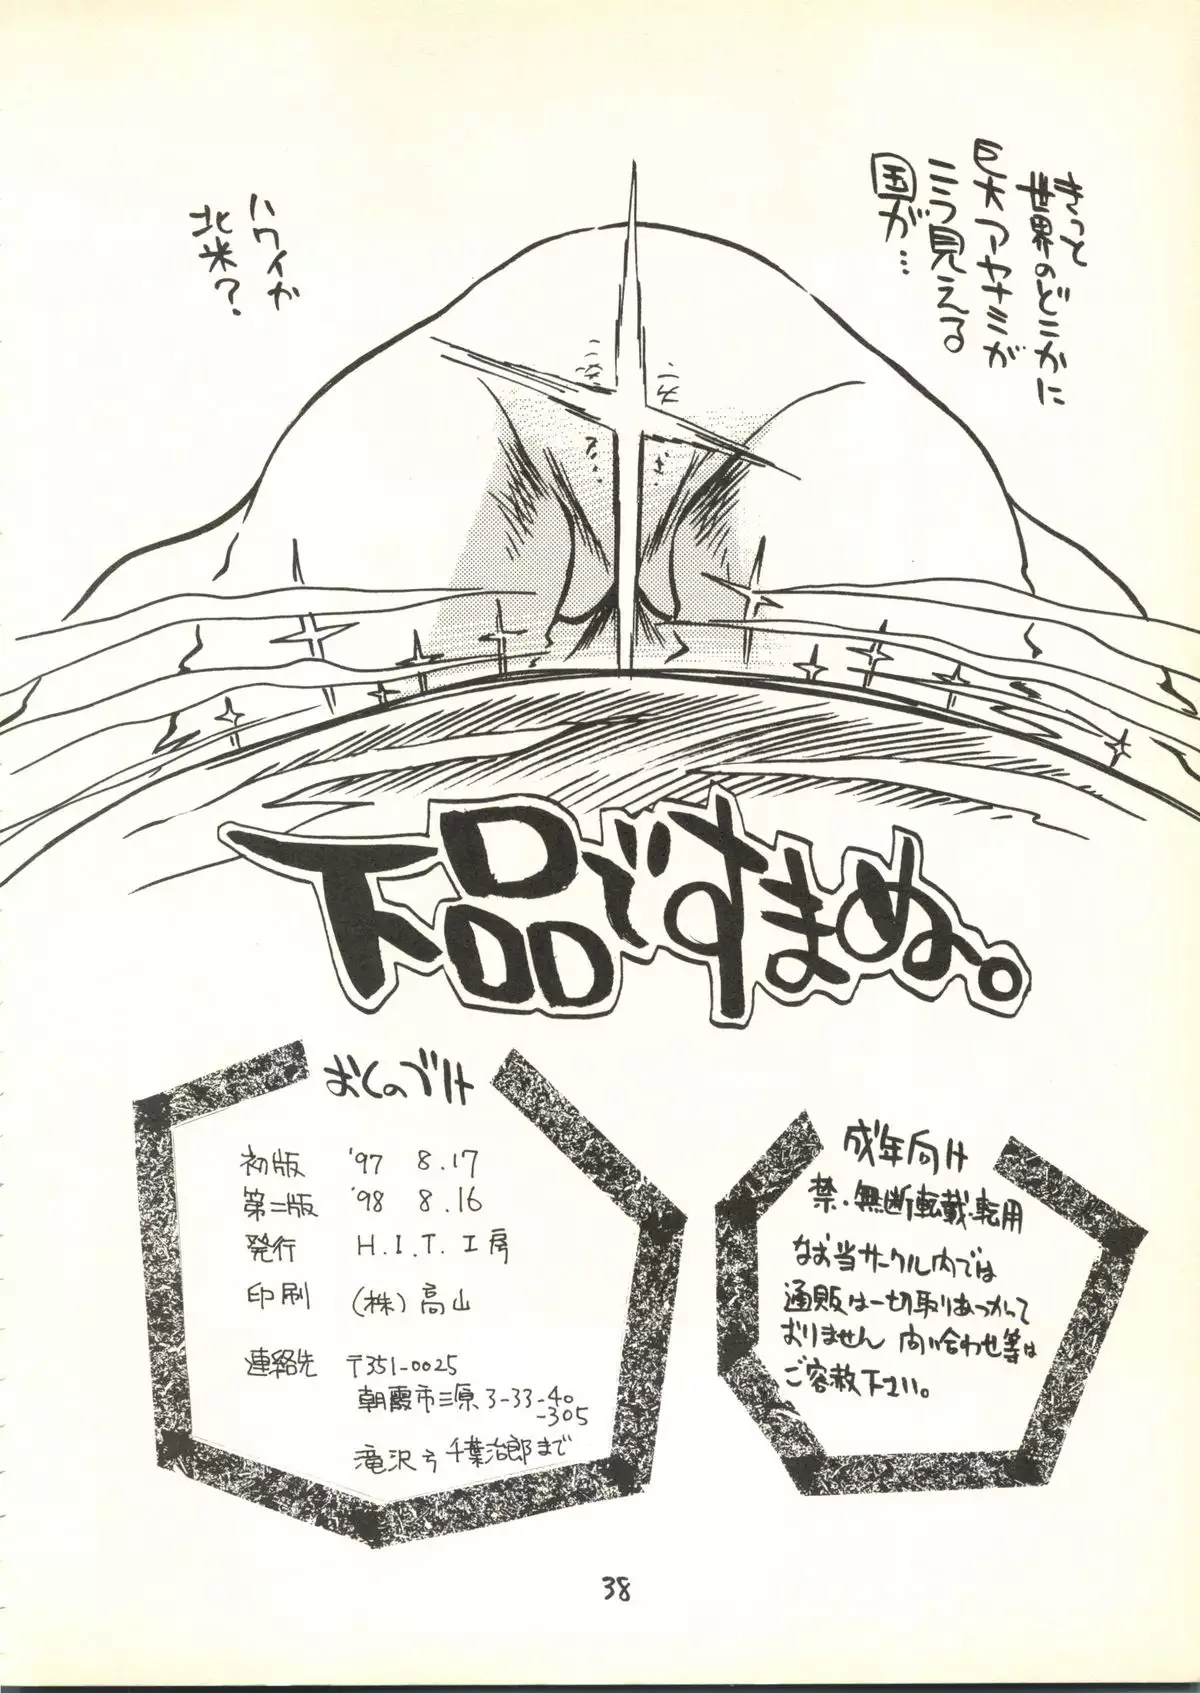 きっと
世界のどこかに
巨大アヤナミが
こう見える
国が…
ハワイか
北米?
下品ですまぬ。
おくのづけ
初版 '97 8.17
第二版 '98 8.16
発行 H.I.T.工房
印刷 (株)高山
連絡先 〒351-0025
朝霞市三原3-33-40
-305
滝沢方 千葉治郎まで
成年向け
禁・無断転載・転用
なお当サークル内では
通販は一切取りあつかって
おりません 向い合わせ等は
ご容赦下さい。
38